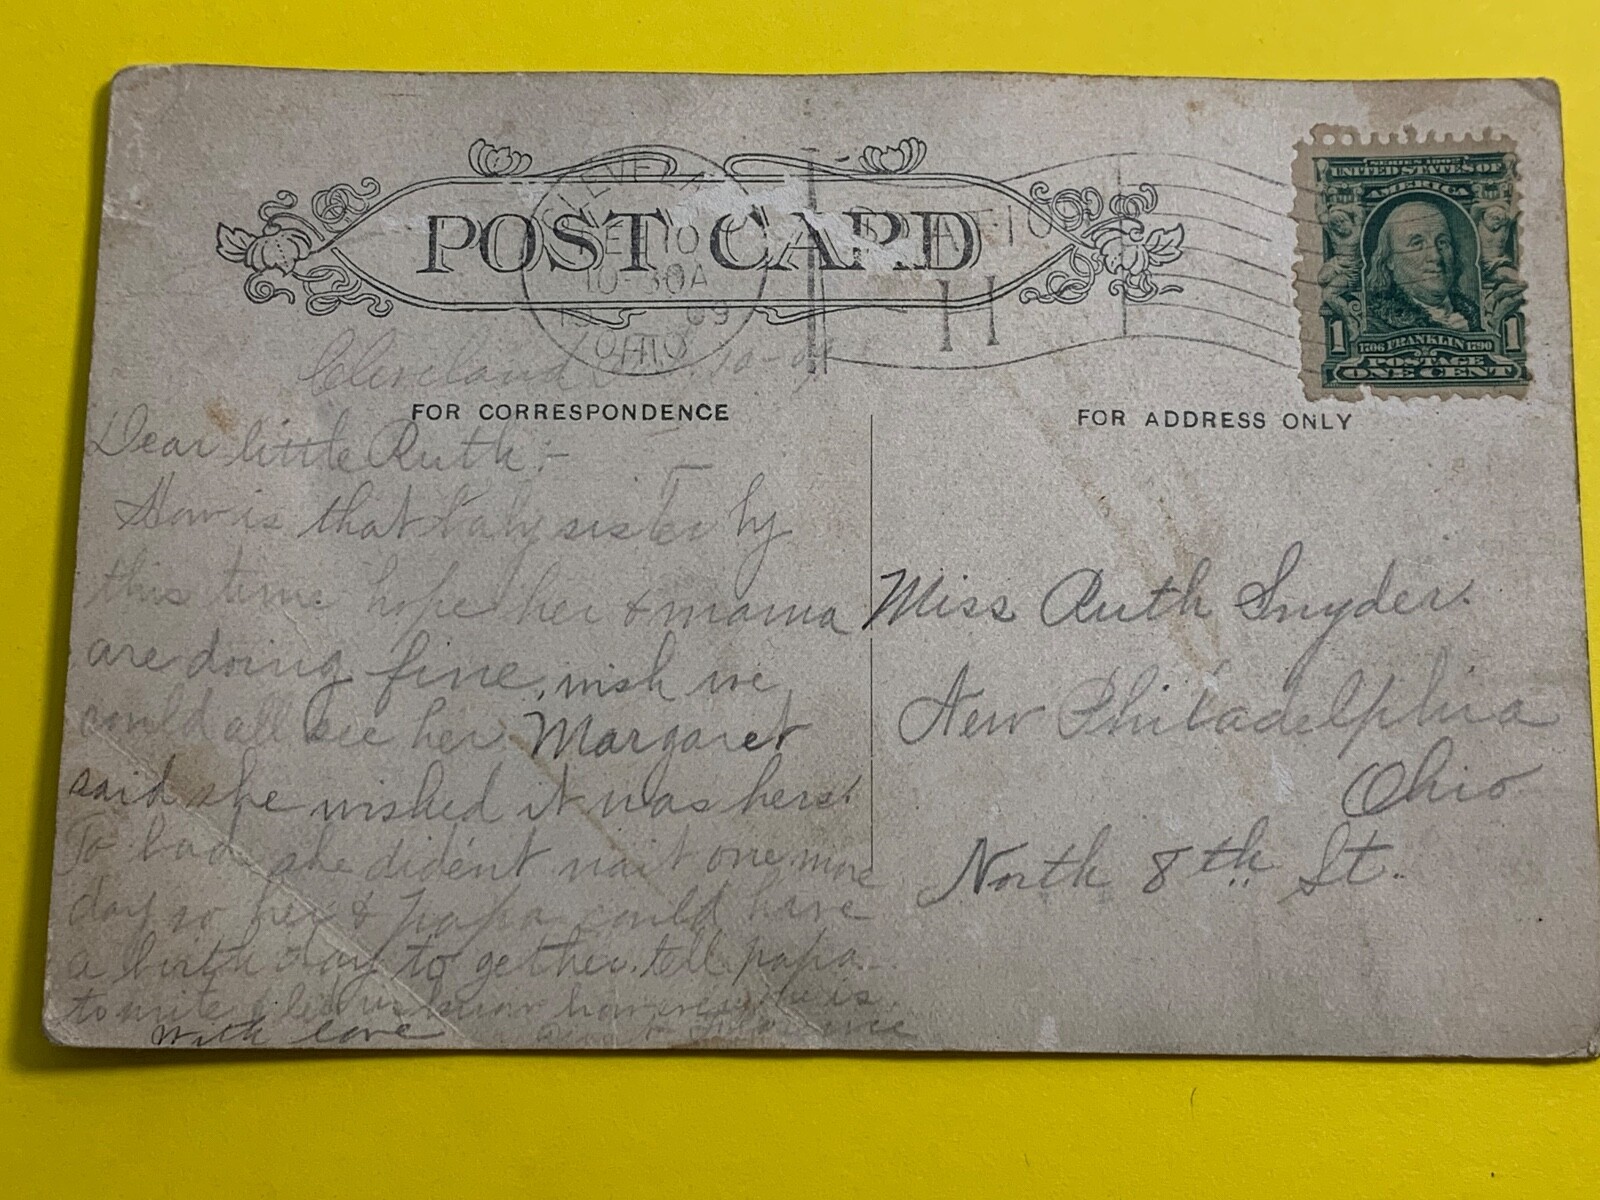 POST CARD
10-30A
OHIO
H
SERIES 1902
UNITED STATES OF
AMERICA
1 1706 FRANKLIN 1790 1
POSTAGE
ONE CENT
Cleveland 10-09
FOR CORRESPONDENCE
Dear little Ruth:-
How is that baby sister by
this time hope her & mama
are doing fine, wish we
could all see her. Margaret
said she wished it was hers!
To bad she dident wait one more
day so her & papa could have
a birth day to gether. tell papa
to write & let us know how she is
With love
FOR ADDRESS ONLY
Miss Ruth Snyder.
New Philadelphia
Ohio
North 8th St.